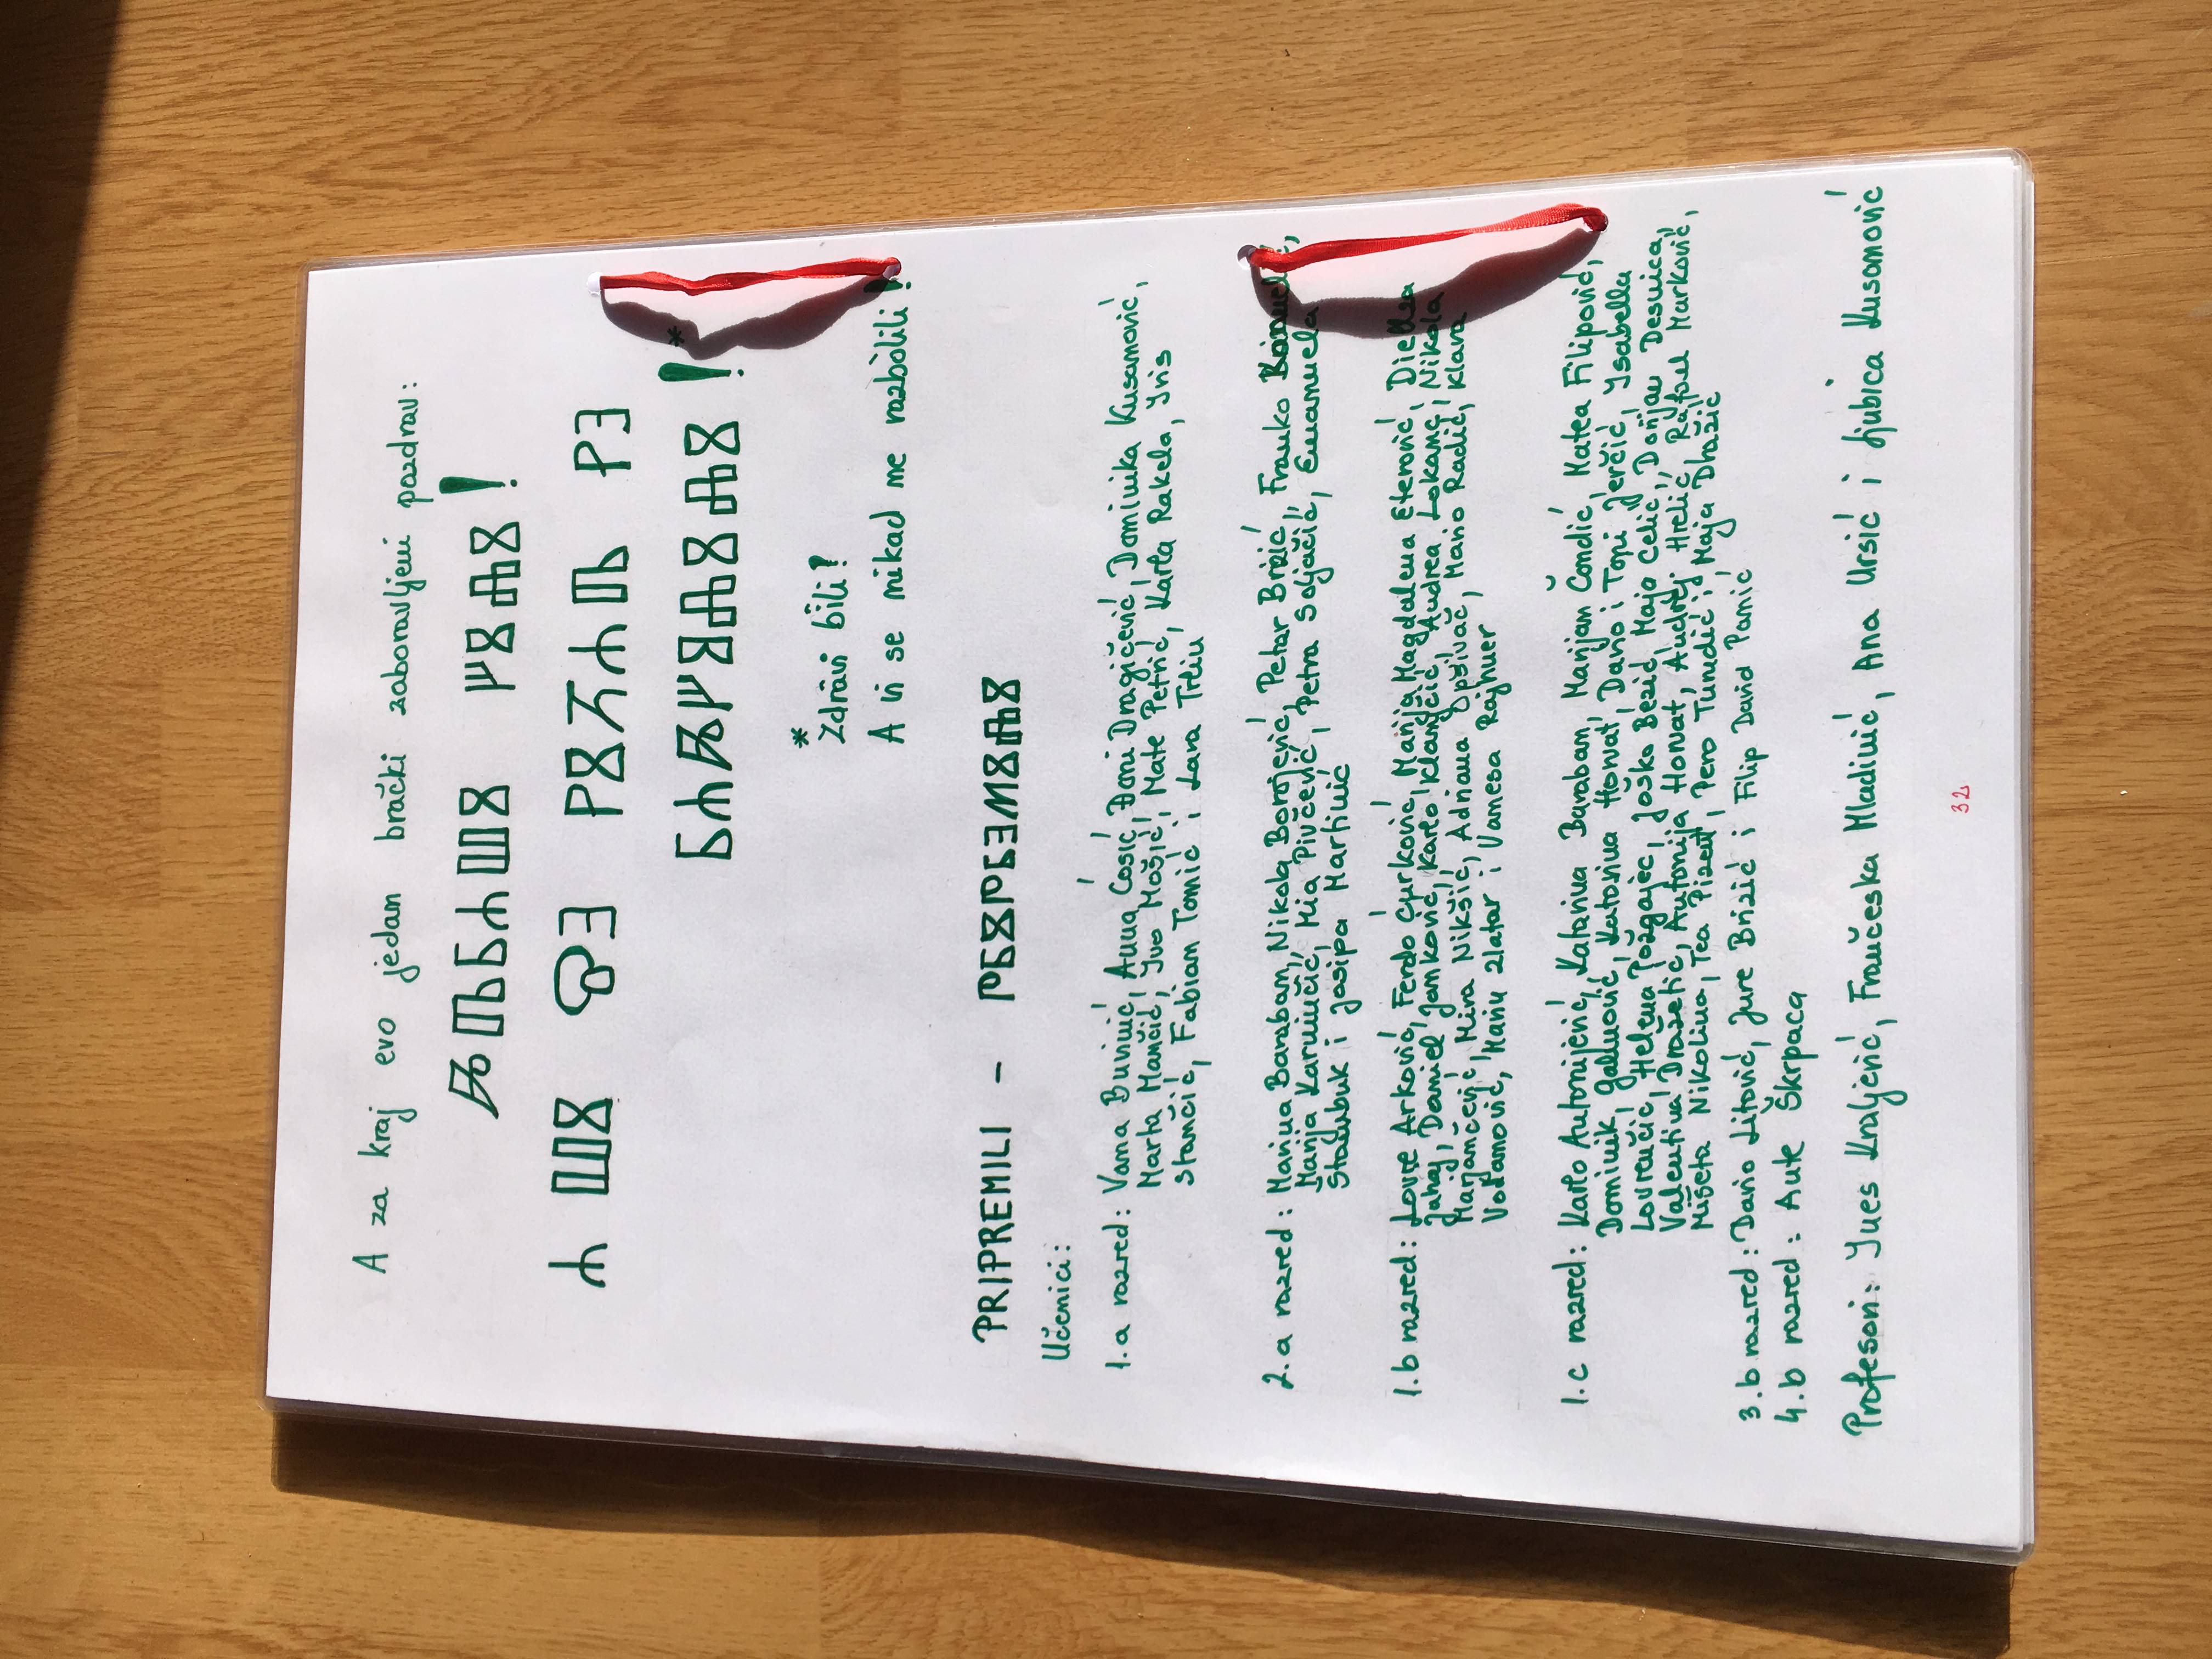 A za kraj evo jedan brački zaboravljeni pozdrav:
ⰈⰄⰓⰀⰂⰋ ⰁⰋⰎⰋ!
Ⰰ ⰂⰋ ⰔⰅ ⰐⰋⰍⰀⰄ ⰐⰅ
ⰓⰀⰈⰁⰑⰎⰋⰎⰋ!*
*
Zdrãvi bîli!
A vi se nikad ne razbòlili!
PRIPREMILI - ⰒⰓⰋⰒⰓⰅⰏⰋⰎⰋ
Učenici:
1.a razred: Vana Buninić, Anna Ćosić, Đani Dragičević, Dominika Kusanović,
Marta Mančić, Ivo Mošić, Mate Petrić, Karla Rakela, Iris
Stančić, Fabian Tomić i Lara Trčiu
2.a razred: Marina Baraban, Nikola Borojević, Petar Brizić, Franko
Marija Karninčić, Mia Pivčević, Petra Soljačić, Emanuela
Stambuk i Josipa Martinić
1.b razred: Lovre Arković, Ferdo Gurković, Marija Magdalena Eterović, Diellza
Jahaj, Daniel Janković, Karlo Klarinčić, Andrea Lokanc, Nikola
Marjančević, Mira Nikšić, Adriana Oršivač, Mario Radić, Klara
Vodanović, Manu Zlatar i Vanesa Rajhner
1.c razred: Karlo Antonijević, Katarina Baraban, Marijan Čondić, Matea Filipović,
Dominik Galinović, Katarina Horvat, Dario i Toni Jerčić, Isabella
Lovrenčić, Helena Požgajec, Joško Bezić, Maja Celić, Dorijan Desnica,
Valentina Dražetić, Antonija Horvat, Andrej Hrelić, Rafael Marković,
Mišeta Nikolina, Tea Pizent, Pero Tundić i Maja Dražić
3.b razred: Dario Litović, Jure Brizić i Filip David Pamić
4.b razred: Ante Škrpaca
Profesori: Ines Kraljević, Frančeska Mladinić, Ana Ursić i Ljubica Kusanović
32